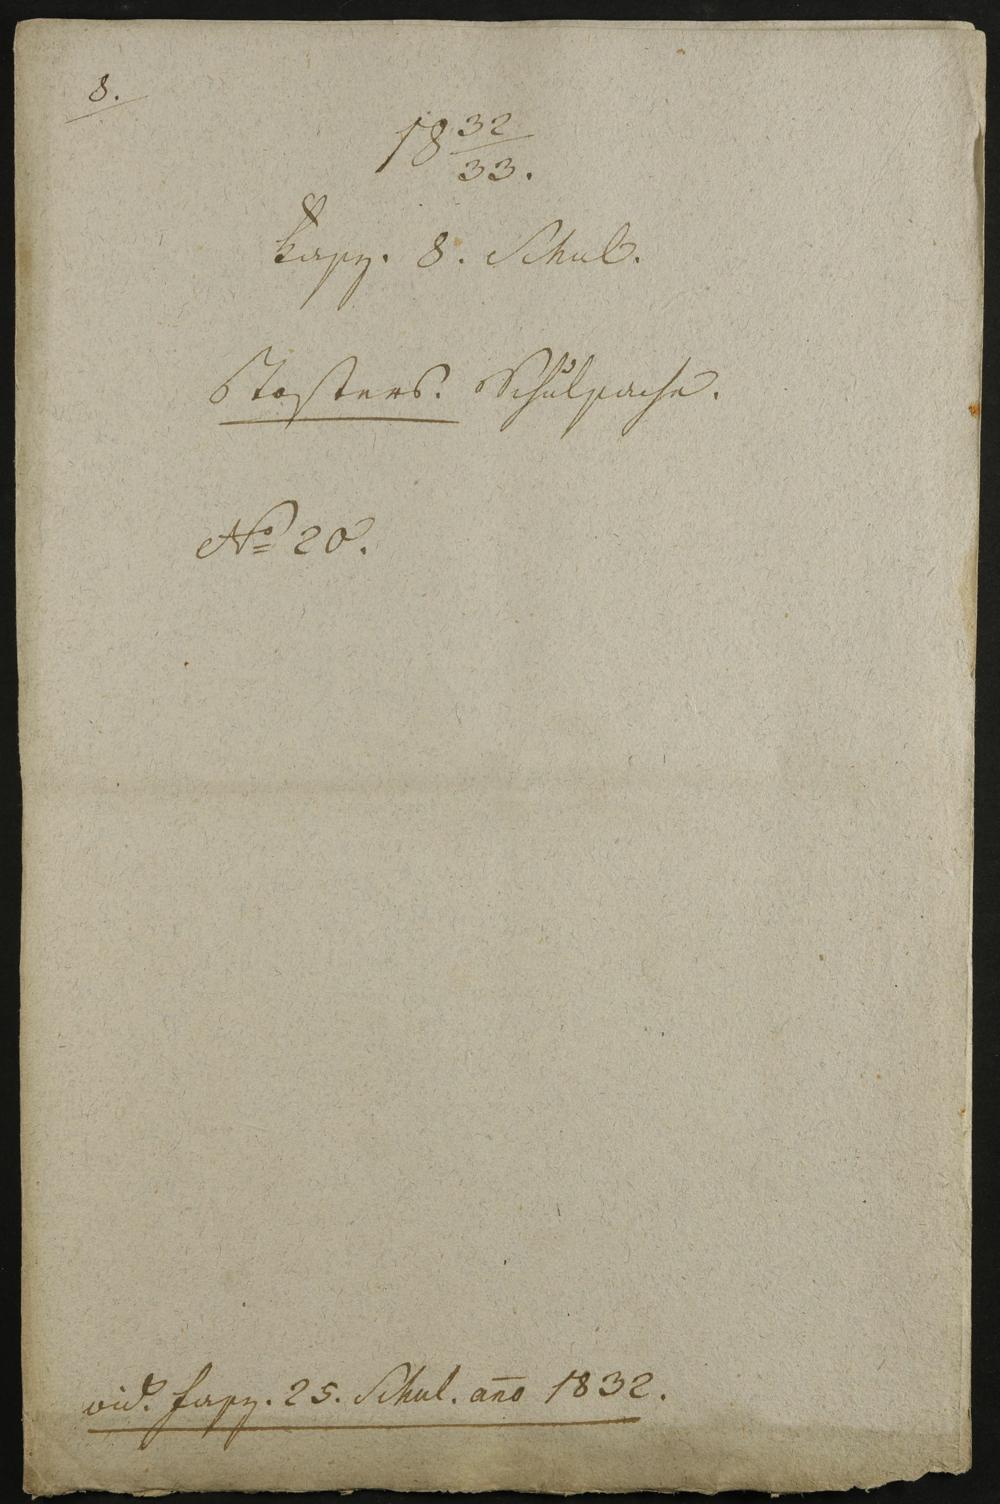 8.
18 32/33.
Fasz. 8. Schul.
Tosters. Schulsache.
No 20.
vid. fasz. 25. Schul. año 1832.